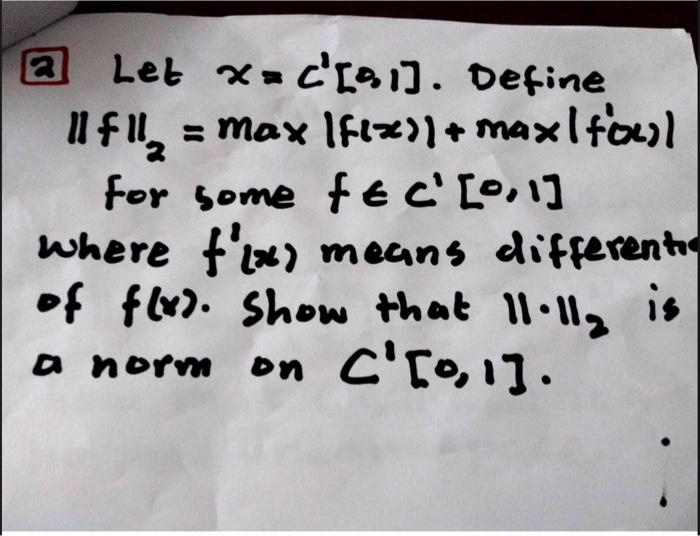 2 Let x = C'[0,1]. Define
||f||₂ = max |f(x)| + max |f'(x)|
for some f ∈ C'[0,1]
where f'(x) means
of f(x). Show that ||·||₂ is
a norm on C'[0,1].